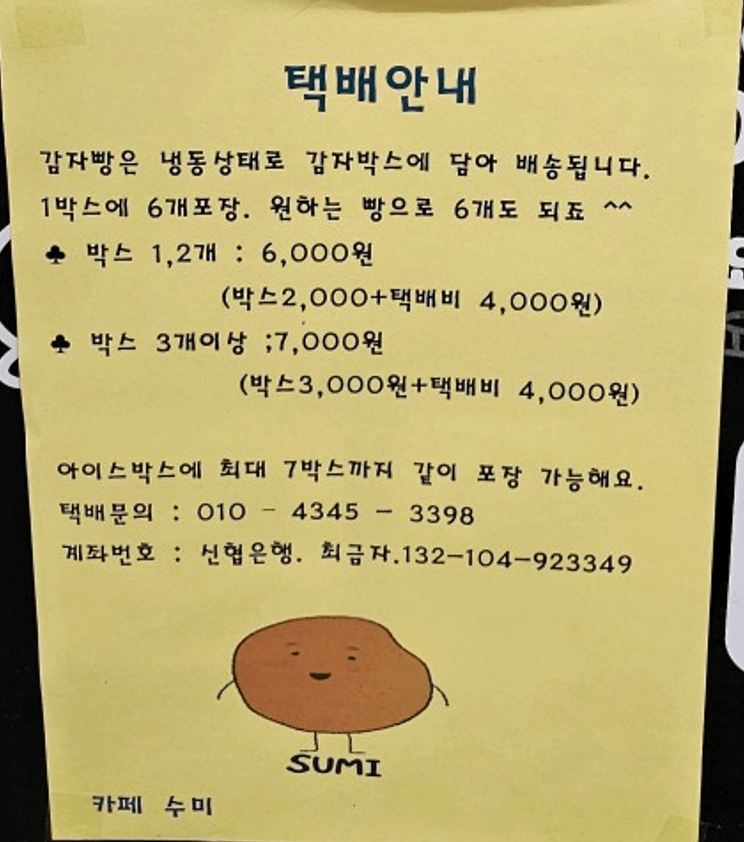 택배안내
감자빵은 냉동상태로 감자박스에 담아 배송됩니다.
1박스에 6개포장. 원하는 빵으로 6개도 되죠 ^^
♣ 박스 1,2개 : 6,000원
(박스2,000+택배비 4,000원)
♣ 박스 3개이상 ;7,000원
(박스3,000원+택배비 4,000원)
아이스박스에 최대 7박스까지 같이 포장 가능해요.
택배문의 : 010 - 4345 - 3398
계좌번호 : 신협은행. 최금자.132-104-923349
SUMI
카페 수미